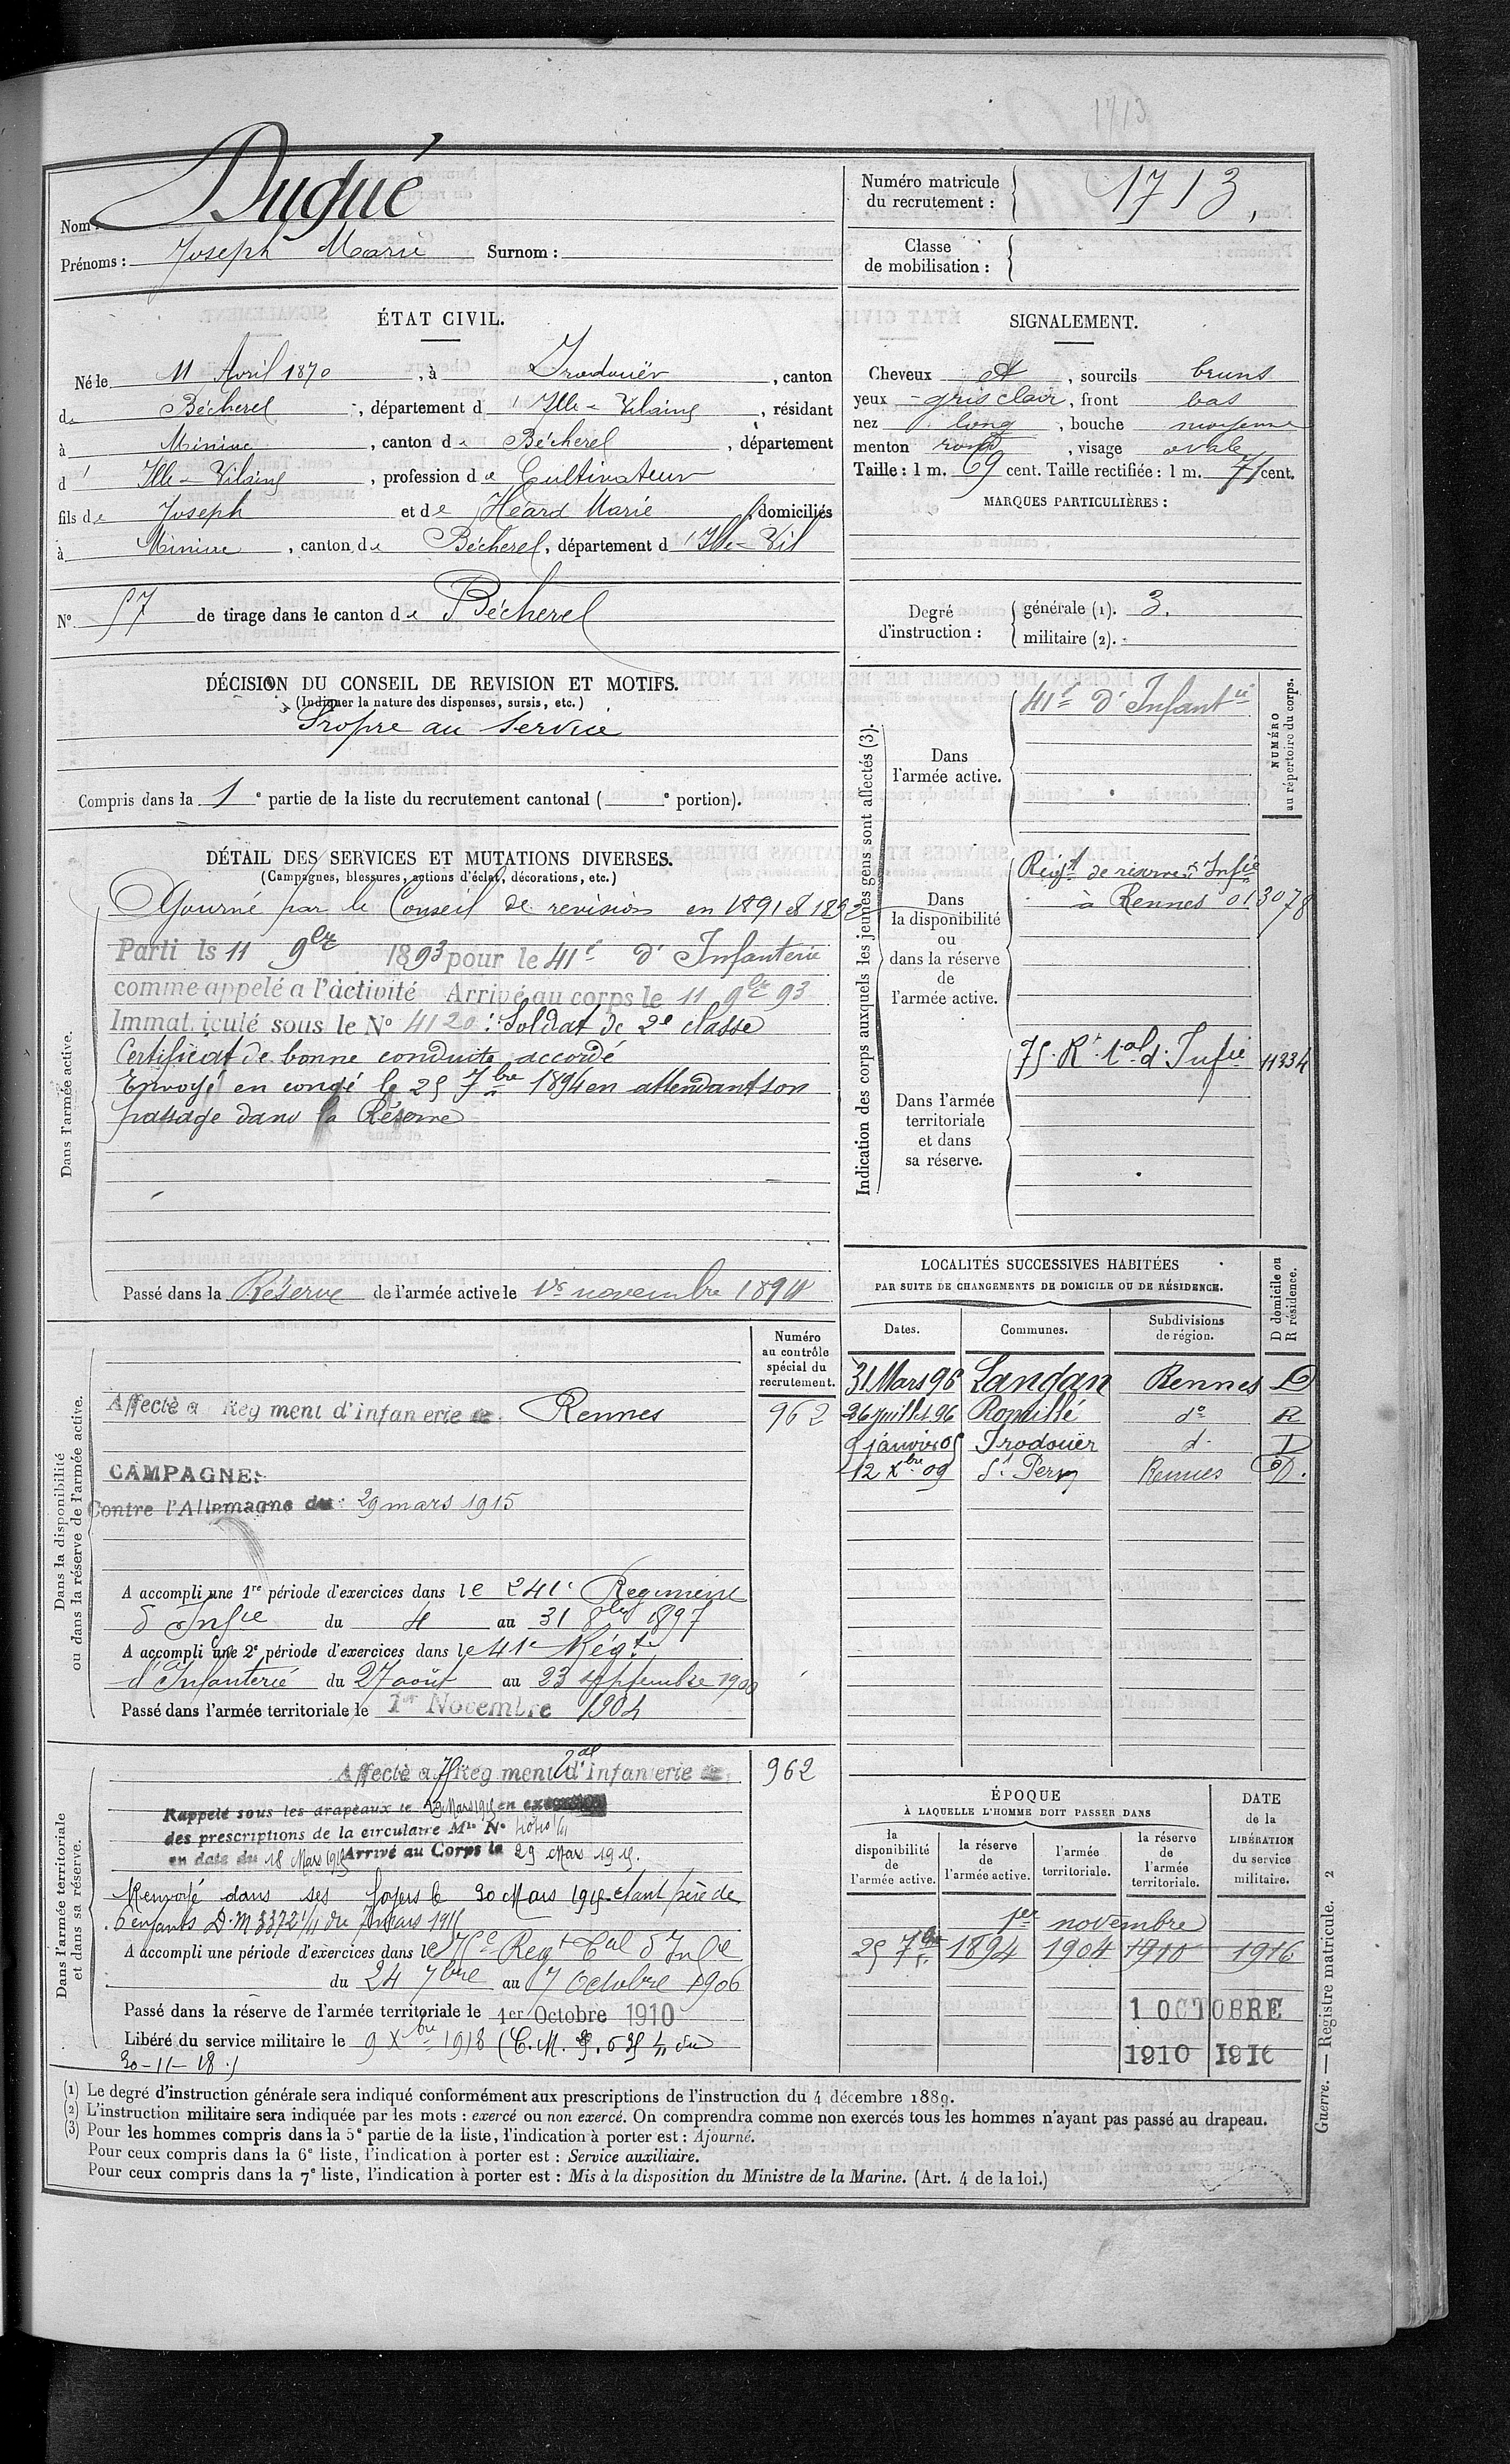 1713
Nom : Dugué
Prénoms : Joseph Marie Surnom :
Numéro matricule
du recrutement :
1713,
Classe
de mobilisation :
ÉTAT CIVIL.
Né le 11 Avril 1870, à Irodouër, canton
de Bécherel, département d'Ille-Vilaine, résidant
à Miniac, canton de Bécherel, département
d'Ille-Vilaine, profession de Cultivateur
fils de Joseph et de Héard Marie domiciliés
à Miniac, canton de Bécherel, département d'Ille-Vil
SIGNALEMENT.
Cheveux et, sourcils bruns
yeux gris clair, front bas
nez long, bouche moyenne
menton rond, visage ovale
Taille : 1 m. 69 cent. Taille rectifiée : 1 m. 71 cent.
MARQUES PARTICULIÈRES :
N° 57 de tirage dans le canton de Bécherel
Degré
d'instruction :
générale (1). 3.
militaire (2).
DÉCISION DU CONSEIL DE REVISION ET MOTIFS.
(Indiquer la nature des dispenses, sursis, etc.)
Propre au service
Compris dans la 1e partie de la liste du recrutement cantonal ( e portion).
DÉTAIL DES SERVICES ET MUTATIONS DIVERSES.
(Campagnes, blessures, actions d'éclat, décorations, etc.)
Dans l'armée active.
Ajourné par le Conseil de revision en 1891 et 1892
Parti le 11 9bre 1893 pour le 41e d'Infanterie
comme appelé a l'activité Arrivé au corps le 11 9bre 93
Immatriculé sous le N° 4120. Soldat de 2e classe
Certificat de bonne conduite accordé
Envoyé en congé le 25 7bre 1894 en attendant son
passage dans la Réserve
Passé dans la Réserve de l'armée active le 1er novembre 1894
Indication des corps auxquels les jeunes gens sont affectés (3).
NUMÉRO
au répertoire du corps.
Dans
l'armée active.
41e d'Infantie
Dans
la disponibilité
ou
dans la réserve
de
l'armée active.
Régt de réserve d'Infie
à Rennes 013078
Dans l'armée
territoriale
et dans
sa réserve.
75 Rt tal d'Infie 11334
LOCALITÉS SUCCESSIVES HABITÉES
PAR SUITE DE CHANGEMENTS DE DOMICILE OU DE RÉSIDENCE.
D domicile ou
R résidence.
Dates. Communes. Subdivisions
de région.
31 Mars 96 Langan Rennes D
26 juillet 96 Romillé do R
9 janvier 05 Irodouër d. D
12 Xbre 09 St Pern Rennes D.
Dans la disponibilité
ou dans la réserve de l'armée active.
Numéro
au contrôle
spécial du
recrutement.
Affecté a Rég ment d'infan erie de Rennes
962
CAMPAGNES
Contre l'Allemagne du 29 mars 1915
A accompli une 1re période d'exercices dans le 241e Régiment
d'Infie du 4 au 31 8bre 1897
A accompli une 2e période d'exercices dans le 41e Régt
d'Infanterie du 27 août au 23 septembre 1900
Passé dans l'armée territoriale le 1er Novembre 1904
Dans l'armée territoriale
et dans sa réserve.
Affecté a 75 Rég ment tal d'Infanterie de
962
Rappelé sous les drapeaux le 29 Mars 1915 en
des prescriptions de la circulaire Mlle N°
en date du 18 Mars 1915 Arrivé au Corps le 29 Mars 1915.
Renvoyé dans ses foyers le 30 Mars 1915 étant père de
6 enfants D.M 3372 1/11 du 7 mars 1915
A accompli une période d'exercices dans le 75e Regt Tal d'Infie
du 24 7bre au 7 Octobre 1906
Passé dans la réserve de l'armée territoriale le 1er Octobre 1910
Libéré du service militaire le 9 Xbre 1918 (C.M. du
30-11-18.)
ÉPOQUE
À LAQUELLE L'HOMME DOIT PASSER DANS
DATE
de la
LIBÉRATION
du service
militaire.
la
disponibilité
de
l'armée active.
la réserve
de
l'armée active.
l'armée
territoriale.
la réserve
de
l'armée
territoriale.
1er novembre
25 7bre 1894 1904 1910 1916
1 OCTOBRE
1910 1916
(1) Le degré d'instruction générale sera indiqué conformément aux prescriptions de l'instruction du 4 décembre 1889.
(2) L'instruction militaire sera indiquée par les mots : exercé ou non exercé. On comprendra comme non exercés tous les hommes n'ayant pas passé au drapeau.
(3) Pour les hommes compris dans la 5e partie de la liste, l'indication à porter est : Ajourné.
Pour ceux compris dans la 6e liste, l'indication à porter est : Service auxiliaire.
Pour ceux compris dans la 7e liste, l'indication à porter est : Mis à la disposition du Ministre de la Marine. (Art. 4 de la loi.)
Guerre. — Registre matricule. 2